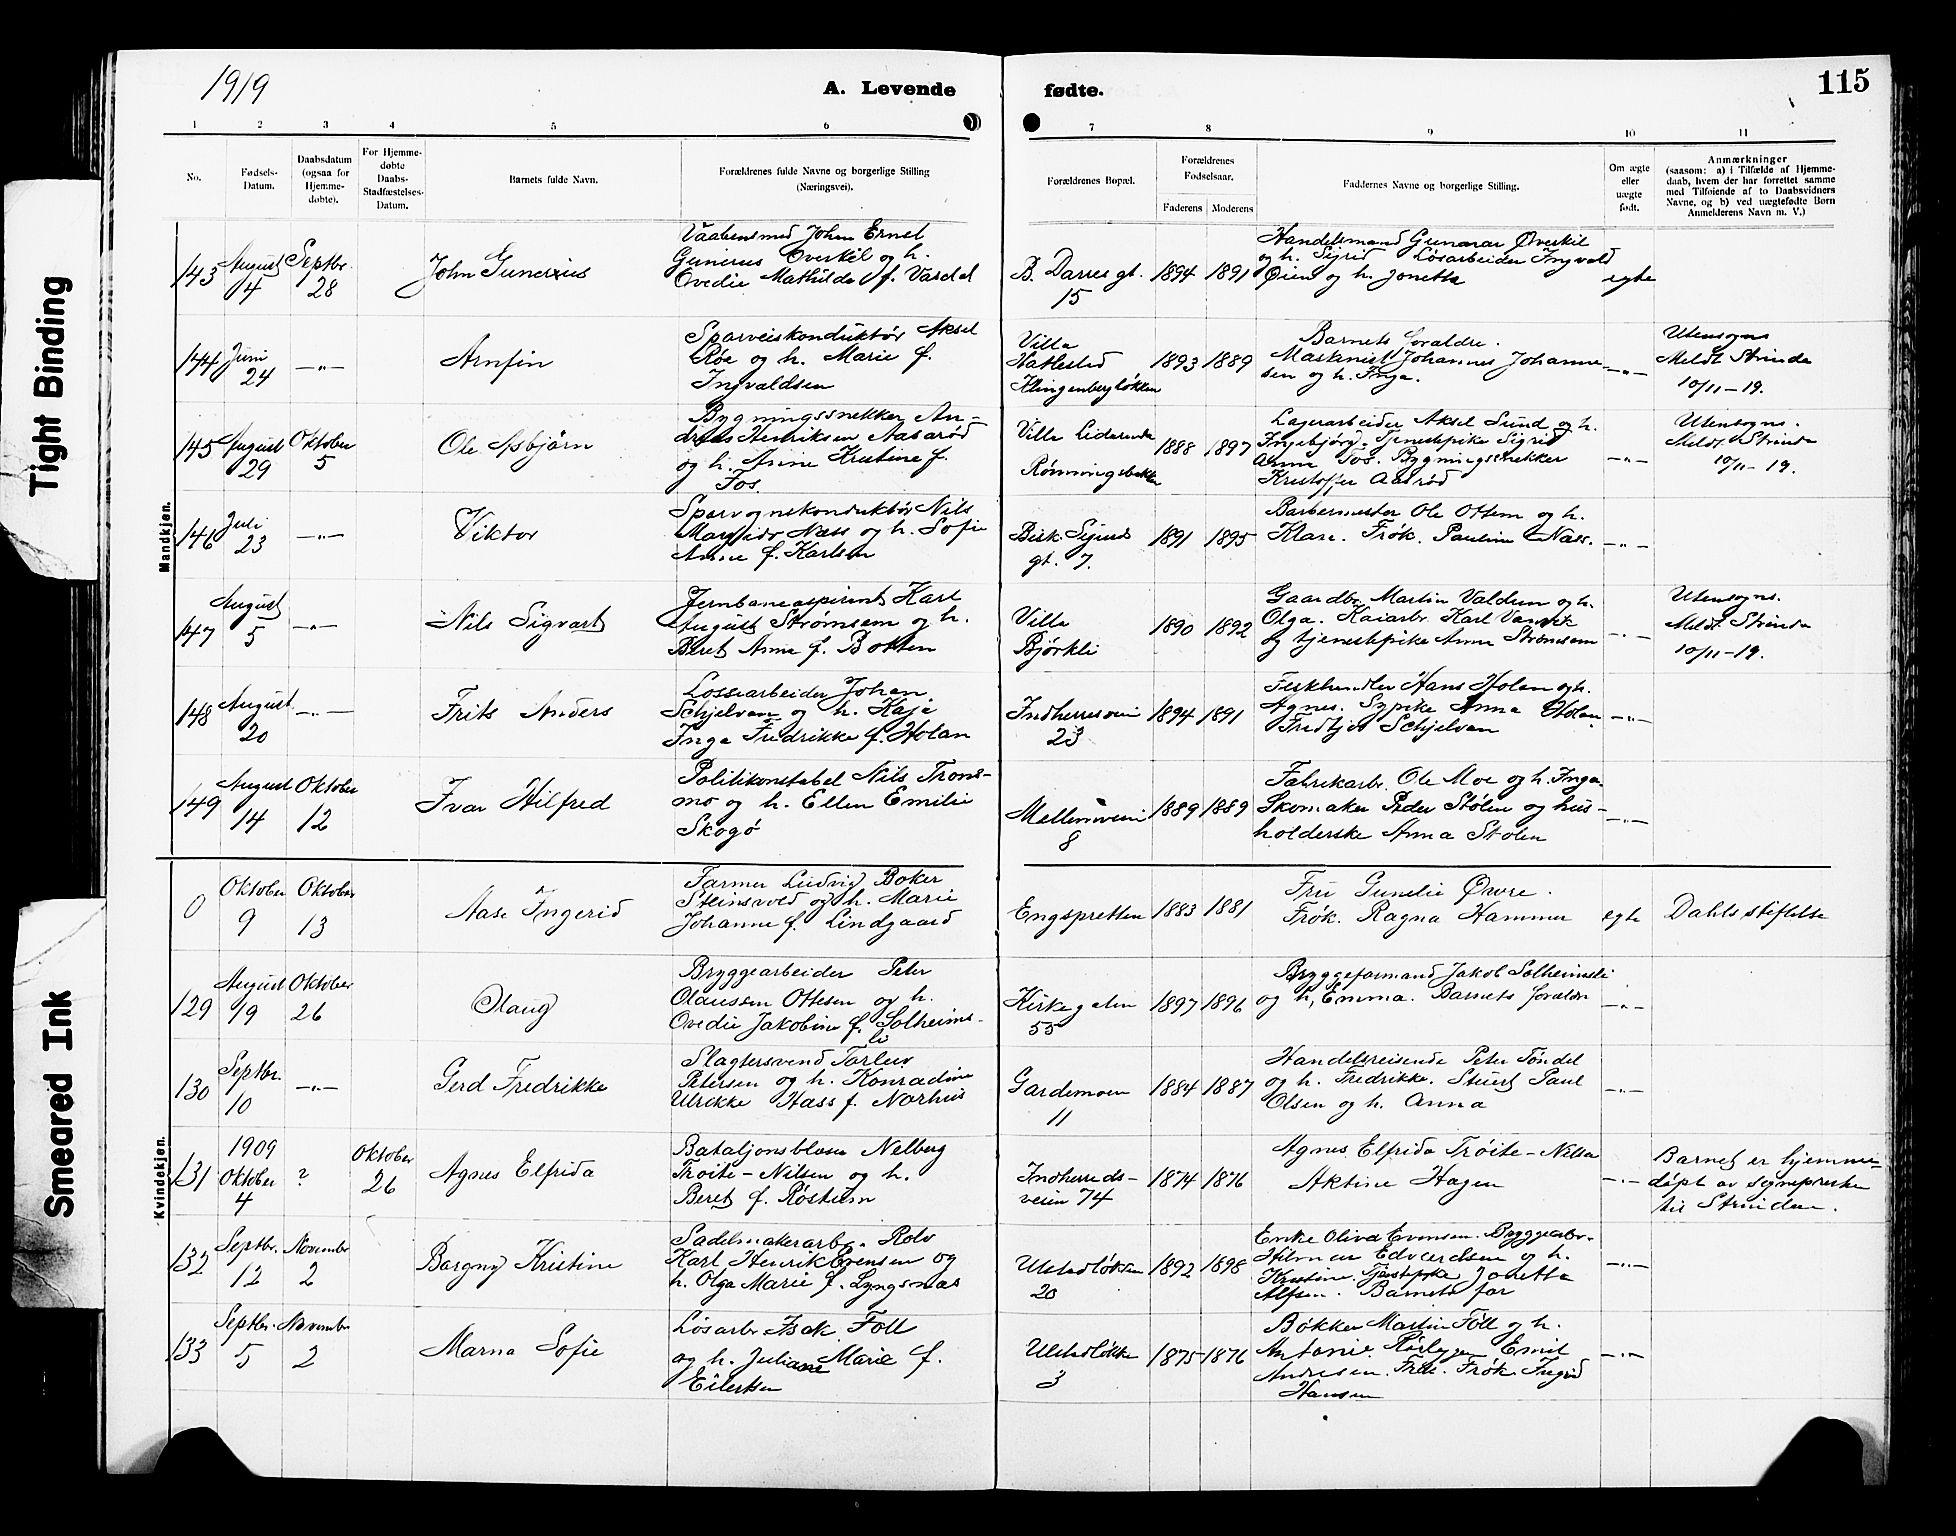 1919
A. Levende fødte.
115
Tight Binding
Smeared Ink
1 2 3 4 5 6 7 8 9 10 11
No.
Fødsels-
Datum.
Daabsdatum
(ogsaa for
Hjemme-
døbte).
For Hjemme-
døbte
Daabs-
Stadfæstelses-
Datum.
Barnets fulde Navn.
Forældrenes fulde Navne og borgerlige Stilling
(Næringsvei).
Forældrenes Bopæl.
Forældrenes
Fødselsaar.
Faderens Moderens
Faddernes Navne og borgerlige Stilling.
Om ægte
eller
uægte
født.
Anmærkninger
(saasom: a) i Tilfælde af Hjemme-
daab, hvem der har forrettet samme
med Tilføiende af to Daabsvidners
Navne, og b) ved uægtefødte Børn
Anmelderens Navn m. V.)
Mandkjøn.
143
August
4
Septbr.
28
John Gunerius
Vaabensmed Johan Ernst
Gunerus Overkil og h.
Ovedie Mathilde f. Vasdal
B. Darres gt.
15
1894 1891
Handelsmand Gunnar Øverkil
og h. Sigrid Løsarbeider Ingvald
Øien og h. Jonetta
egte
144
Juni
24
—„—
Arnfin
Sporveiskonduktør Aksel
Røe og h. Marie f.
Ingvaldsen
Villa
Hatlested
Klingenbergløkken
1893 1889
Barnets foraldre.
Maskinist Johannes Johanne-
sen og h. Inga.
—„—
Utensogns
Meldt Strinda
10/11-19.
145
August
29
Oktober
5
Ole Asbjørn
Bygningssnekker An-
dreas Henriksen Aasarød
og h. Anne Kristine f.
Fos.
Villa
Rønningsbakken
1888 1897
Lagerarbeider Aksel Sund og h.
Ingebjørg. Tjenestepike Sigrid
Anna Fos. Bygningsnekker
Kristoffer Aasrød
—„—
Utensogns.
Meldt Strinda
10/11-19.
146
Juli
23
—„—
Viktor
Sporvognskonduktør Nils
Næss og h. Sofie
Anne f. Karlsen
Bisk. Sigurds
gt. 7.
1891 1895
Barbermester Ole Ottem og h.
Klara. Frøk. Pauline Næss.
—„—
147
August
5
—„—
Nils Sigvart
Jernbaneaspirant Karl
August Strømsem og h.
Beret Anna f. Botten
Villa
Bjørkli
1890 1892
Gaardbr. Martin Valdum og h.
Olga. Kaiarbr. Karl
og tjenestepike Anna Strømsem
—„—
Utensogns.
Meldt Strinda
10/11-19.
148
August
20
—„—
Frits Anders
Lossearbeider Johan
Schjelvan og h. Kaja
Inga Fredrikke f. Holan
Indherresveien
23
1894 1891
Fiskhandler Hans Holan og h.
Agnes. Sypike Anna Holan
Fredtjof Schjelvan
—„—
149
August
14
Oktober
12
Ivar Hilfred
Politikonstabel Nils Trons-
mo og h. Ellen Emilie
Skogø
Mellemveien
8
1889 1889
Fabrikarbr. Ole Moe og h. Inga.
Skomaker Peder Stølen og hus-
holderske Anna Stølen
—„—
Kvindekjøn.
0
Oktober
9
Oktober
13
Aase Ingerid
Farmer Ludvig Boker
Steinsvold og h. Marie
Johanne f. Lindgaard
Engspretten
1883 1881
Fru Gunelie Øvre.
Frøk. Ragna Hammer
egte
Dahls stiftelse
129
August
19
Oktober
26
Olaug
Bryggearbeider Peter
Olaussen Ottesen og h.
Ovedie Jakobine f. Solheims-
li
Kirkegaten
55
1897 1896
Bryggeformand Jakob Solheimsli
og h, Emma. Barnets foraldre
—„—
130
Septbr.
10
—„—
Gerd Fredrikke
Slagtersvend Torleiv
Petersen og h. Konradine
Ulrikke Hass f. Norhus
Gardemoen
11
1884 1887
Handelsreisende Peter Tøndel
og h. Fredrikke. Stuert Paul
Olsen og h. Anna
—„—
131
1909
Oktober
4
?
Oktober
26
Agnes Elfrida
Bataljonsblaser Nelberg
Trøite-Nilsen og h.
Beret f. Røstum
Indherreds-
veien 74
1874 1876
Agnes Elfrida Trøite-Nilsen
Aktine Hagen
—„—
Barnet er hjemme-
døpt av sogneprestn
til Strinden.
132
Septbr.
12
November
2
Borgny Kristine
Sadelmakerarbr. Rolv
Karl Henrik Evensen og
h. Olga Marie f. Lyngsnæs
Ulstadløkken
20
1892 1898
Enke Oliva Evensen. Bryggearbr.
Hilmar Edvardsen og h.
Kristine. Tjenestepike Jonetta
Alfsen. Barnets far
—„—
133
Septbr.
5
November
2
Marna Sofie
Løsarbr Isak Foll
og h. Juliane Marie f.
Eilertsen
Ulstadløkke
3
1875 1876
Bøkker Martin Föll og h.
Antonie. Rørlegger Emil
Andresen. Frøk. Ingrid
Hansen
—„—